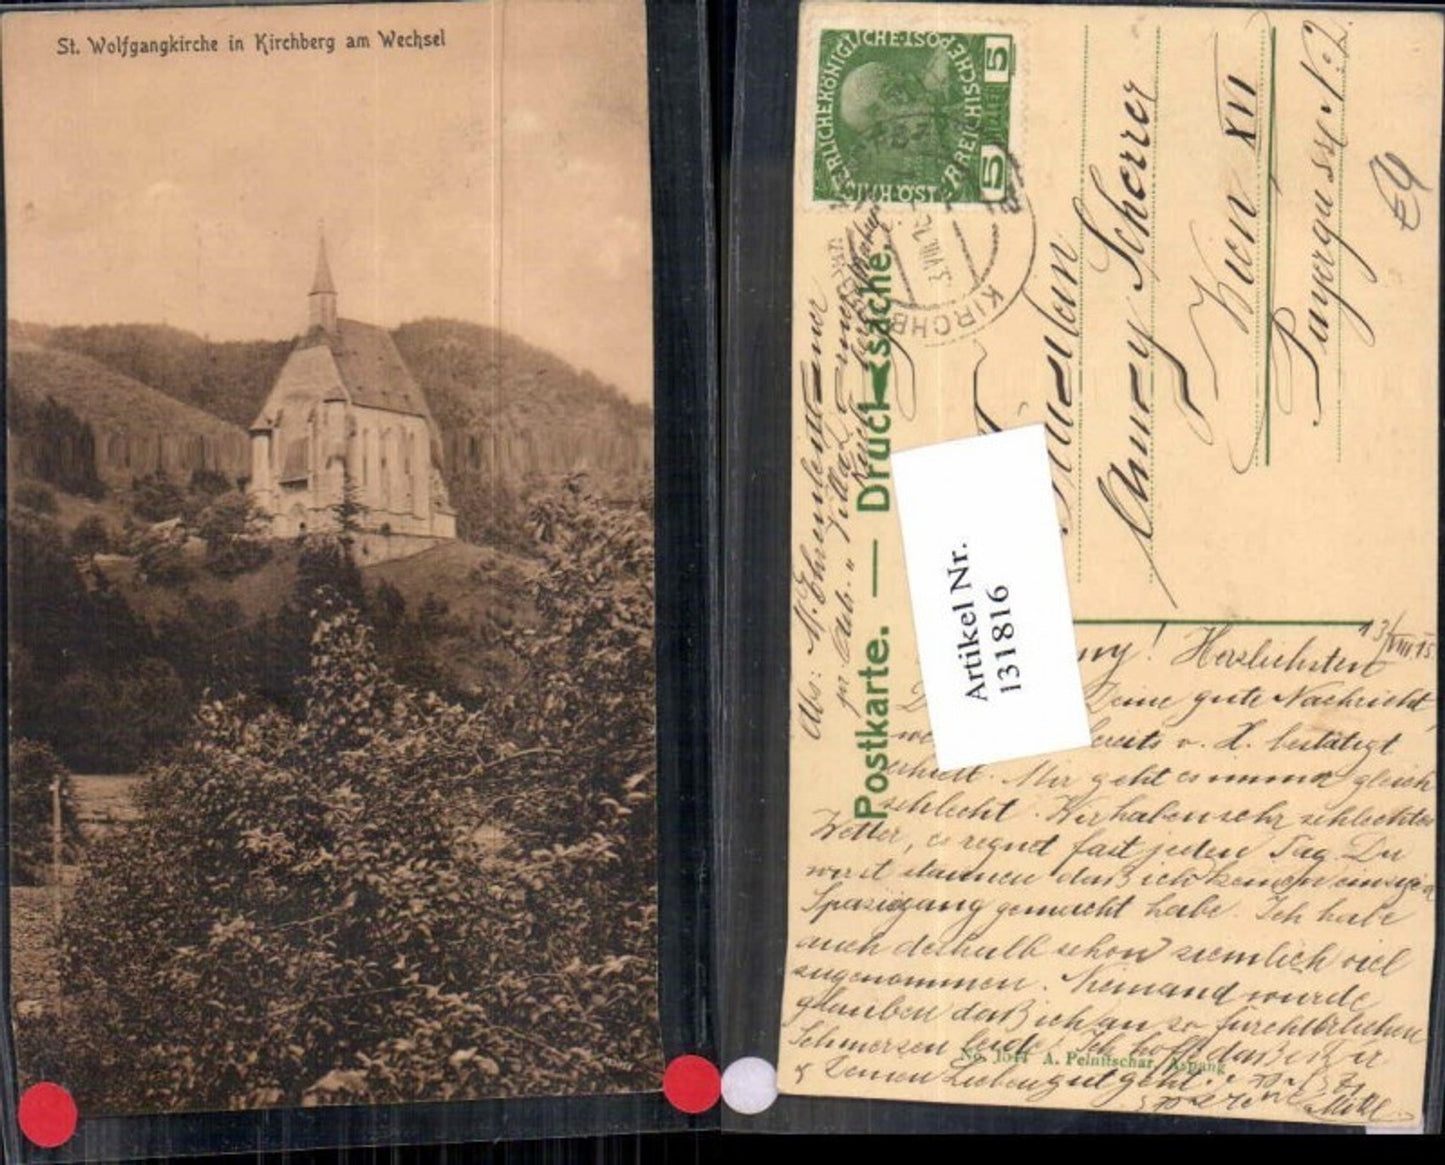 St. Wolfgangkirche in Kirchberg am Wechsel
5
5
3.VIII.
KIRCHB
Postkarte. — Drucksache.
Abs:
Fräulein
Anny Scherrer
Wien XVI
Payergasse No 2.
Artikel Nr.
131816
3/VIII.15
Herzlichsten
Deine gute Nachricht
v. H. bestätigt
erhielt. Mir geht es immer gleich
schlecht. Wir haben sehr schlechtes
Wetter, es regnet fast jeden Tag. Du
wirst staunen daß ich keinen einzigen
Spaziergang gemacht habe. Ich habe
auch deshalb schon ziemlich viel
zugenommen. Niemand würde
glauben daß ich an so fürchterlichen
Schmerzen leide. Ich hoffe daß es Dir
& Deinen Lieben gut geht.
No. 1044 A. Pelnitschar, Aspang